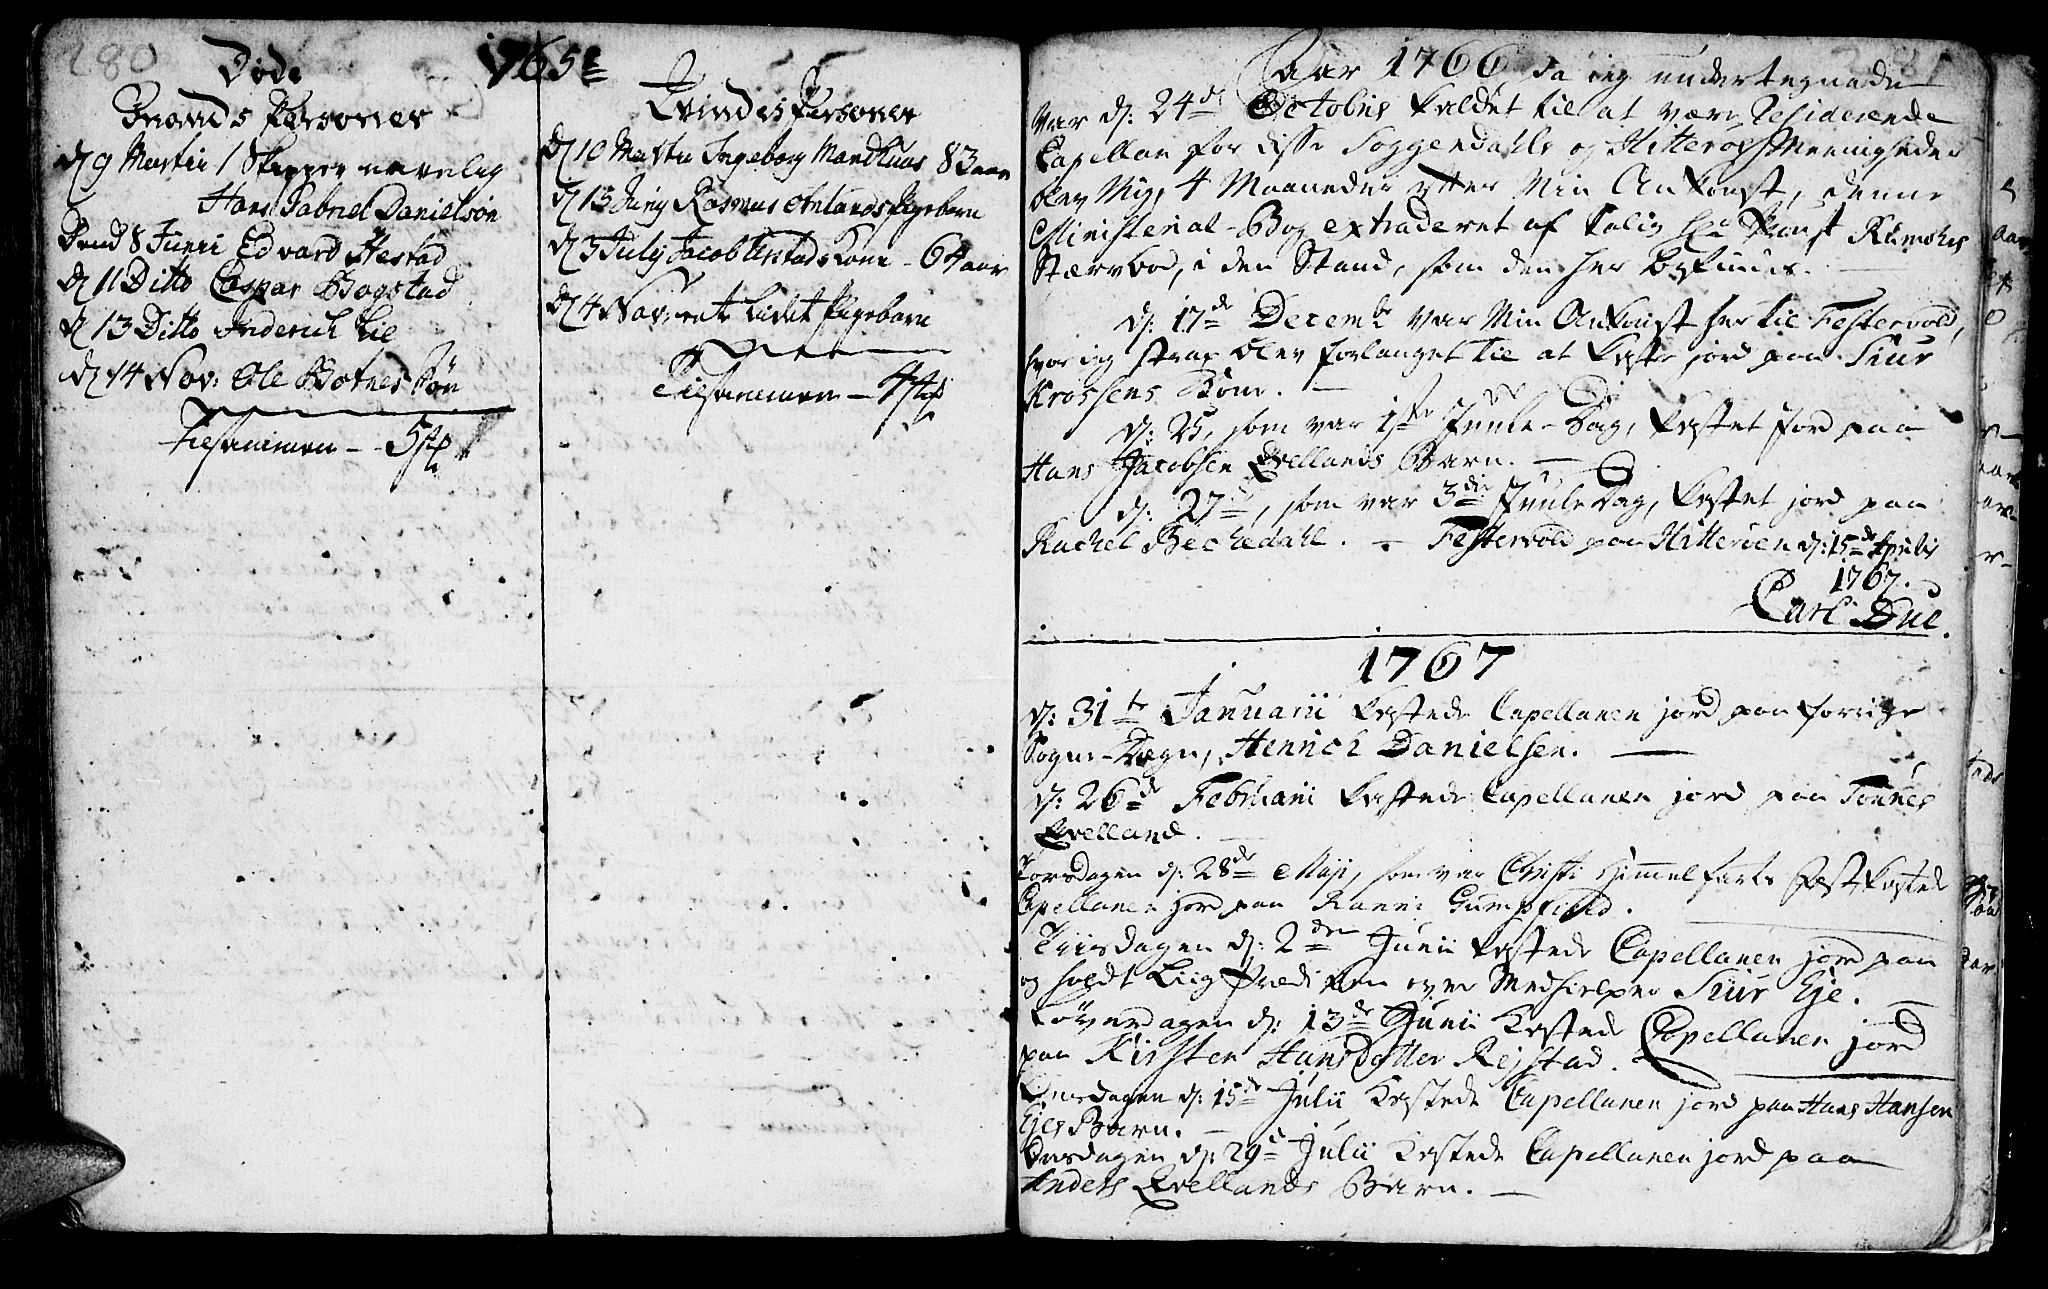 280
Døde 1765
Mands Personer
d 9 Martii 1 Skipper navnlig
Hans Gabriel Danielsøn
Dend 8 Junii Edvard Hestad
d 11 Ditto Caspar Bogstad
d 13 Ditto Friderich Lie
d 14 Nov: Ole Botnes Søn
Tilsammen - 5
Qvindes Personer
d 10 Martii Ingeborg Mandhuus 83 aar
d 13 Juny Rasmus Anlands Pigebarn
d 3 July Jacob Kone - 64 aar
d 4 Nov: et lidet Pigebarn
Tilsammen - 4
Aar 1766 da jeg undertegnede
var d: 24de Octobris kaldet til at være Residerende
Capellan for disse Soggendahls og Hitterøes Meenigheder
blev Mig, 4 Maaneder efter Min Ankomst, denne
Ministerial-Bog extraderet af Salig Hr
Stærvbod, i den Stand, som den her befindes.
d: 17de Decembr var Min Ankomst her til Festervold,
hvor jeg strax blev forlanget til at kaste jord paa Siur
Krossens Kone.
d: 25, som var 1ste Juule-Dag, kastet jord paa
Hans Jacobsen Qvellands Barn.
d: 27de, som var 3die Juule Dag, kastet jord paa
Rachel Beckedahl. - Festervold paa Hitterøen d: 15de Aprilis
1767.
Carl Due.
1767
d: 31te Januarii kastede Capellanen jord paa forrige
Sogne-Degn, Henrich Danielsen.
d: 26de Februarii kastede Capellanen jord paa Tønnes
Qvelland.
Torsdagen d: 28de Maji, som var Christi Himmelfarts Fest, kastede
Capellanen jord paa Ranni
Tiirsdagen d: 2den Junii kastede Capellanen jord paa
og holdt Liig Prædiken over Medhielper Siur Eje.
Løverdagen d: 13de Junii kastede Capellanen jord
paa Kirsten Hansdatter Rejstad.
Onsdagen d: 15de Julii kastede Capellanen jord paa Hans Hansen
Ejes Barn.
Onsdagen d: 29de Julii kastede Capellanen jord paa
Anders Qvellands Barn.